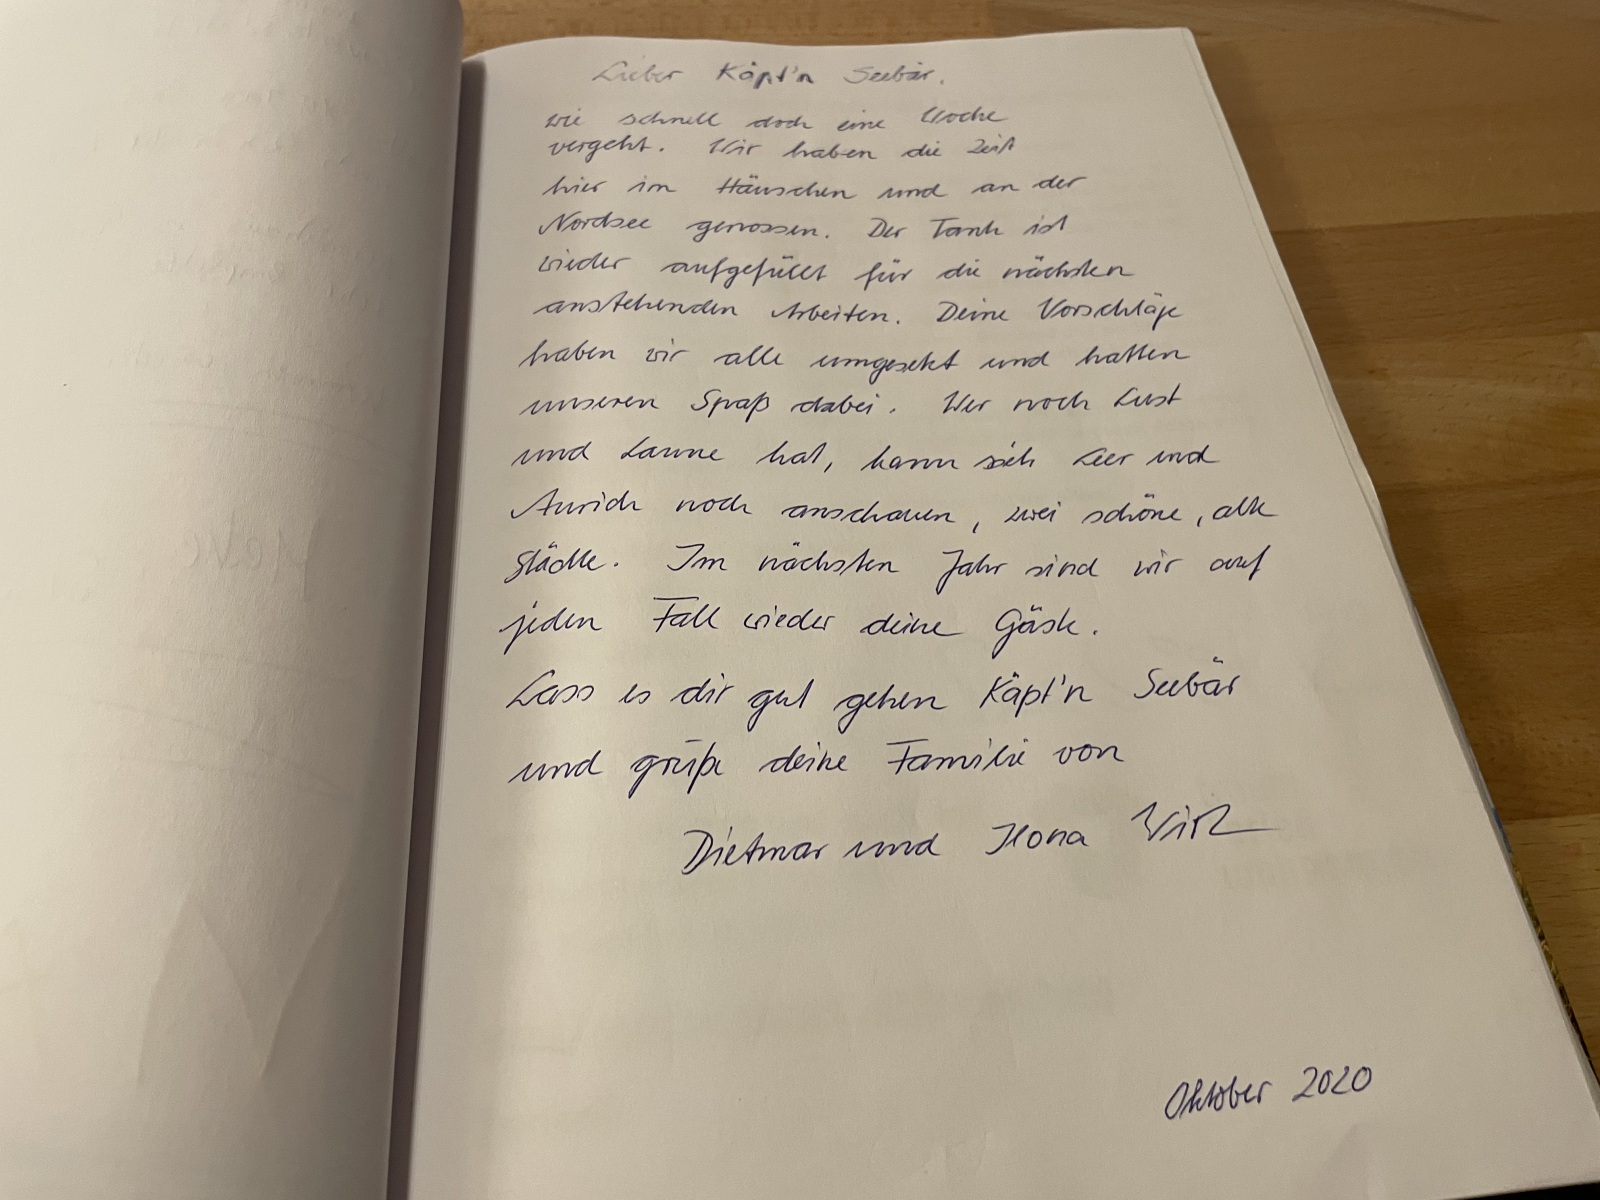 Lieber Käpt'n Seebär,
wie schnell doch eine Woche
vergeht. Wir haben die Zeit
hier im Häuschen und an der
Nordsee genossen. Der Tank ist
wieder aufgefüllt für die nächsten
anstehenden Arbeiten. Deine Vorschläge
haben wir alle umgesetzt und hatten
unseren Spaß dabei. Wer noch Lust
und Laune hat, kann sich Leer und
Aurich noch anschauen, zwei schöne, alte
Städte. Im nächsten Jahr sind wir auf
jeden Fall wieder deine Gäste.
Lass es dir gut gehen Käpt'n Seebär
und grüße deine Familie von
Dietmar und Ilona
Oktober 2020